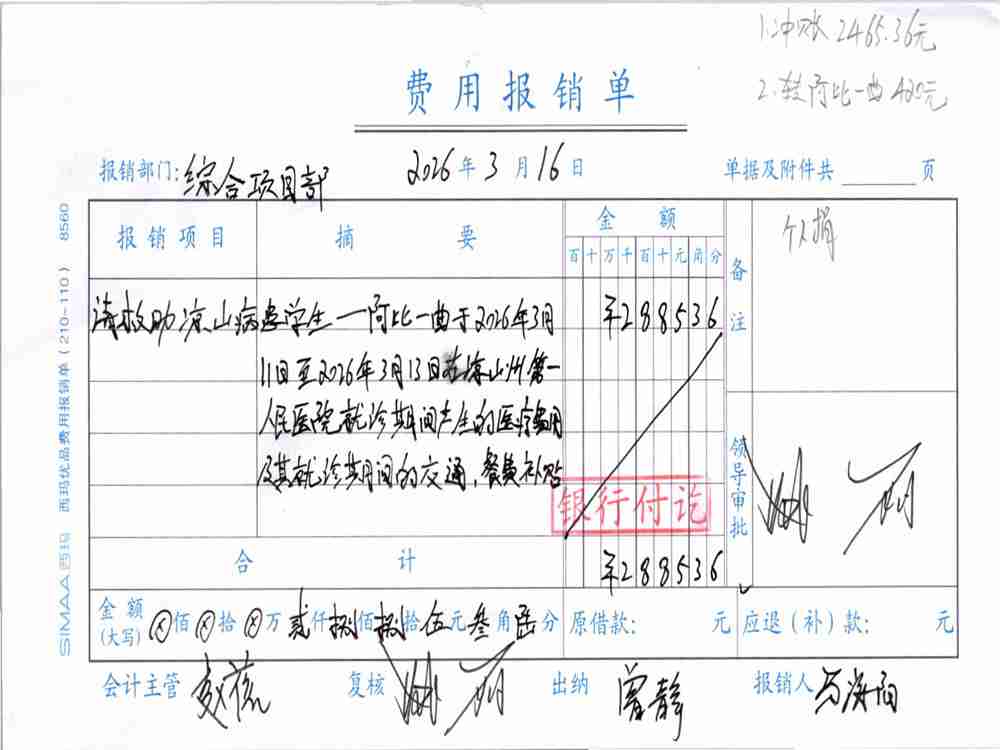 1.冲账 2465.36元
2.转阿比一曲 420元
费用报销单
报销部门:综合项目部
2026年3月16日
单据及附件共 页
报销项目
摘 要
金 额
百十万千百十元角分
备注
个人捐
请救助凉山病患学生一阿比一曲于2026年3月
¥288536
11日至2026年3月13日在凉山州第一
人民医院就诊期间产生的医疗费用
及其就诊期间的交通,餐费补贴
银行付讫
领导审批
合 计
¥288536
金额(大写) ⊗佰⊗拾⊗万贰仟捌佰捌拾伍元叁角陆分
原借款: 元
应退(补)款: 元
会计主管
复核
出纳 曾静
报销人
SIMAA西玛 西玛优品费用报销单(210-110) 8560